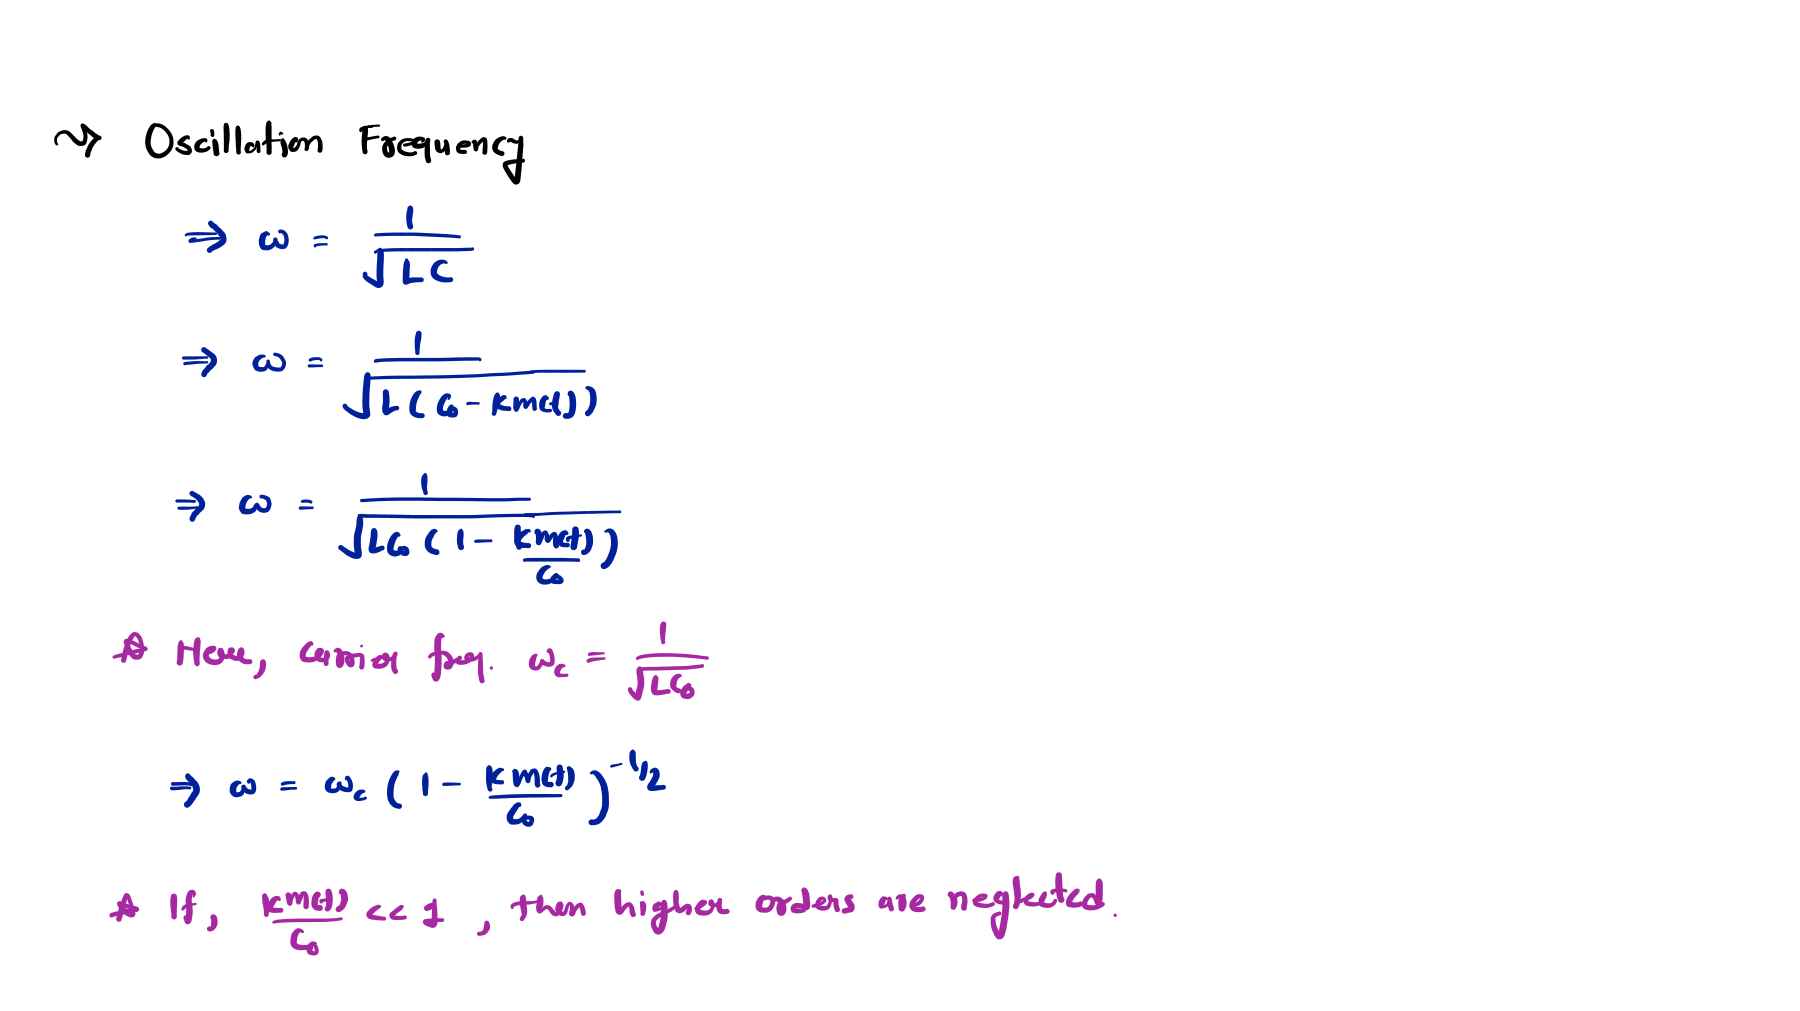 ⤳ Oscillation Frequency
⇒ ω = 1/√(LC)
⇒ ω = 1/√(L(C₀ - km(t)))
⇒ ω = 1/√(LC₀(1 - km(t)/C₀))
☆ Here, carrier freq. ω_c = 1/√(LC₀)
⇒ ω = ω_c (1 - km(t)/C₀)^(-1/2)
☆ If, km(t)/C₀ << 1, then higher orders are neglected.